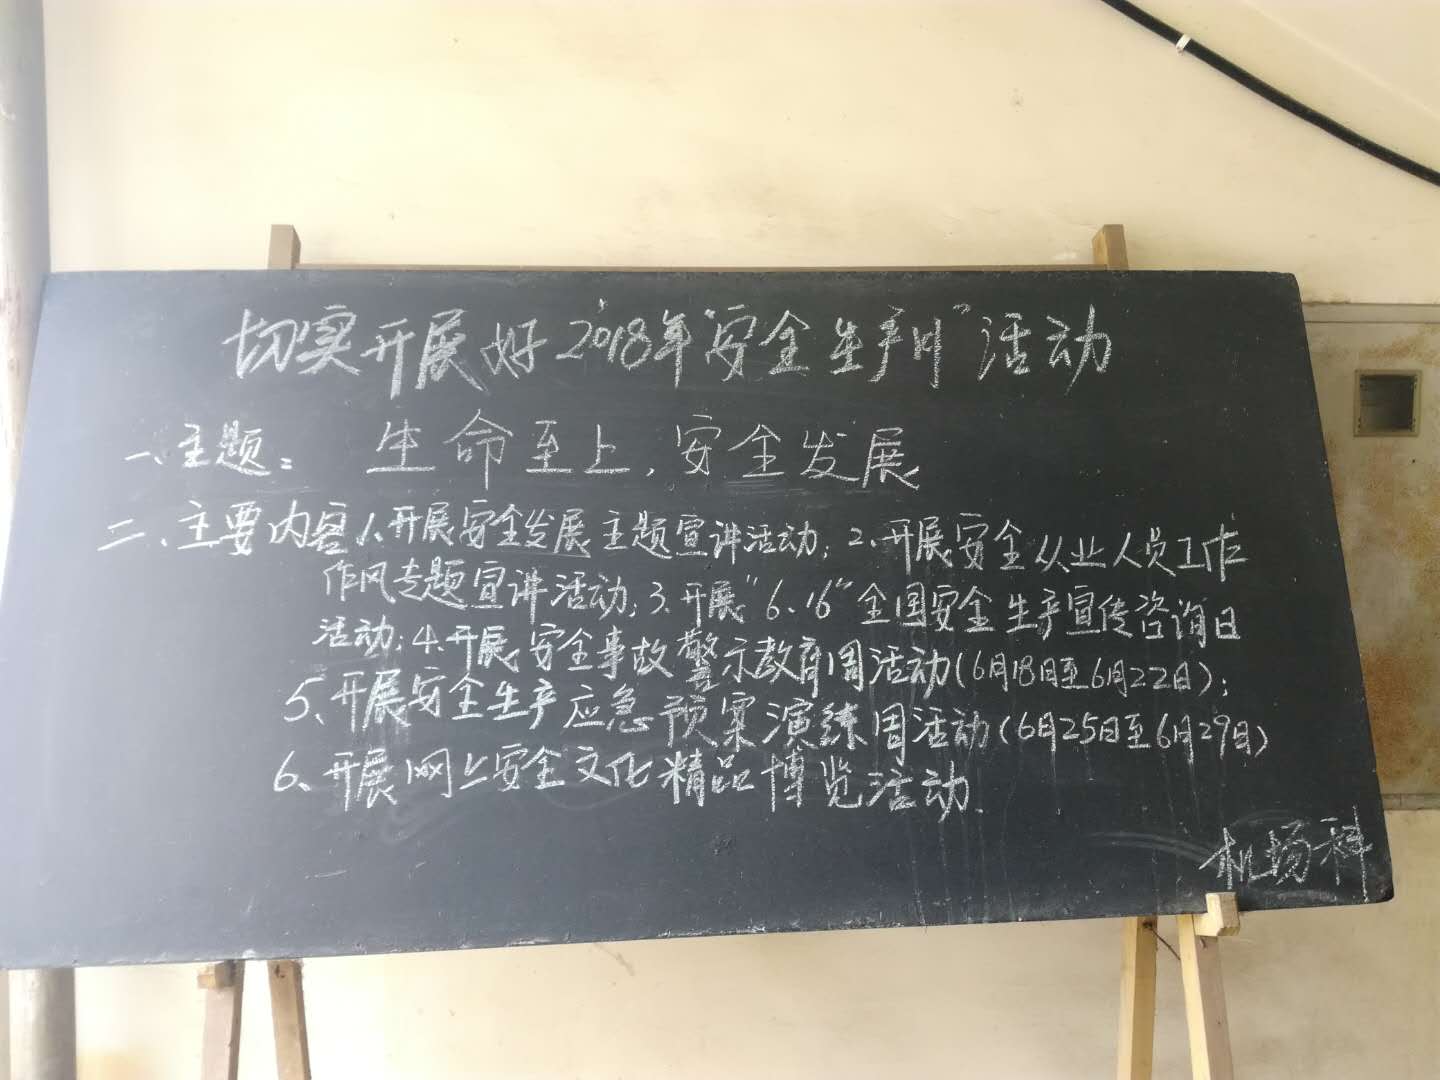 切实开展好2018年"安全生产月"活动
一、主题: 生命至上,安全发展
二、主要内容1、开展安全发展主题宣讲活动;2、开展安全从业人员工作
作风专题宣讲活动;3、开展"6、16"全国安全生产宣传咨询日
活动;4、开展安全事故警示教育周活动(6月18日至6月22日);
5、开展安全生产应急预案演练周活动(6月25日至6月29日)
6、开展网上安全文化精品博览活动.
机场科